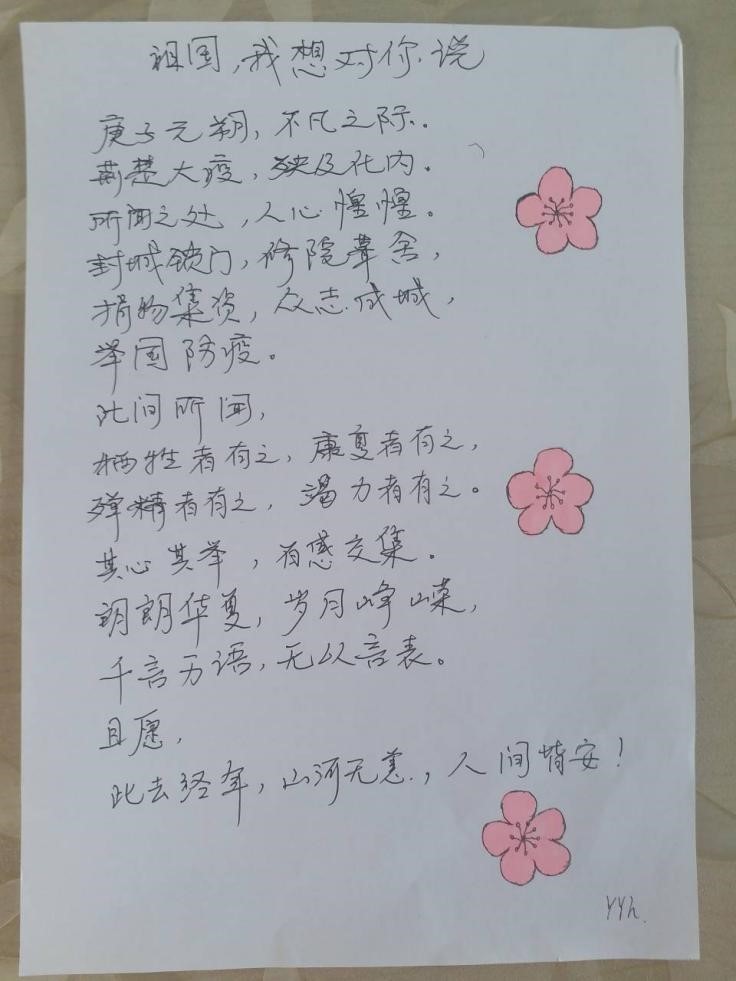 祖国,我想对你说
庚子元朔,不凡之际.
荆楚大疫,殃及化内.
所闻之处,人心惶惶。
封城锁门,修院葺舍,
捐物集资,众志成城,
举国防疫。
此间所闻,
牺牲者有之,康复者有之,
殚精者有之,竭力者有之。
其心其举,百感交集.
朗朗华夏,岁月峥嵘,
千言万语,无以言表。
且愿,
此去经年,山河无恙.,人间皆安!
YYh.